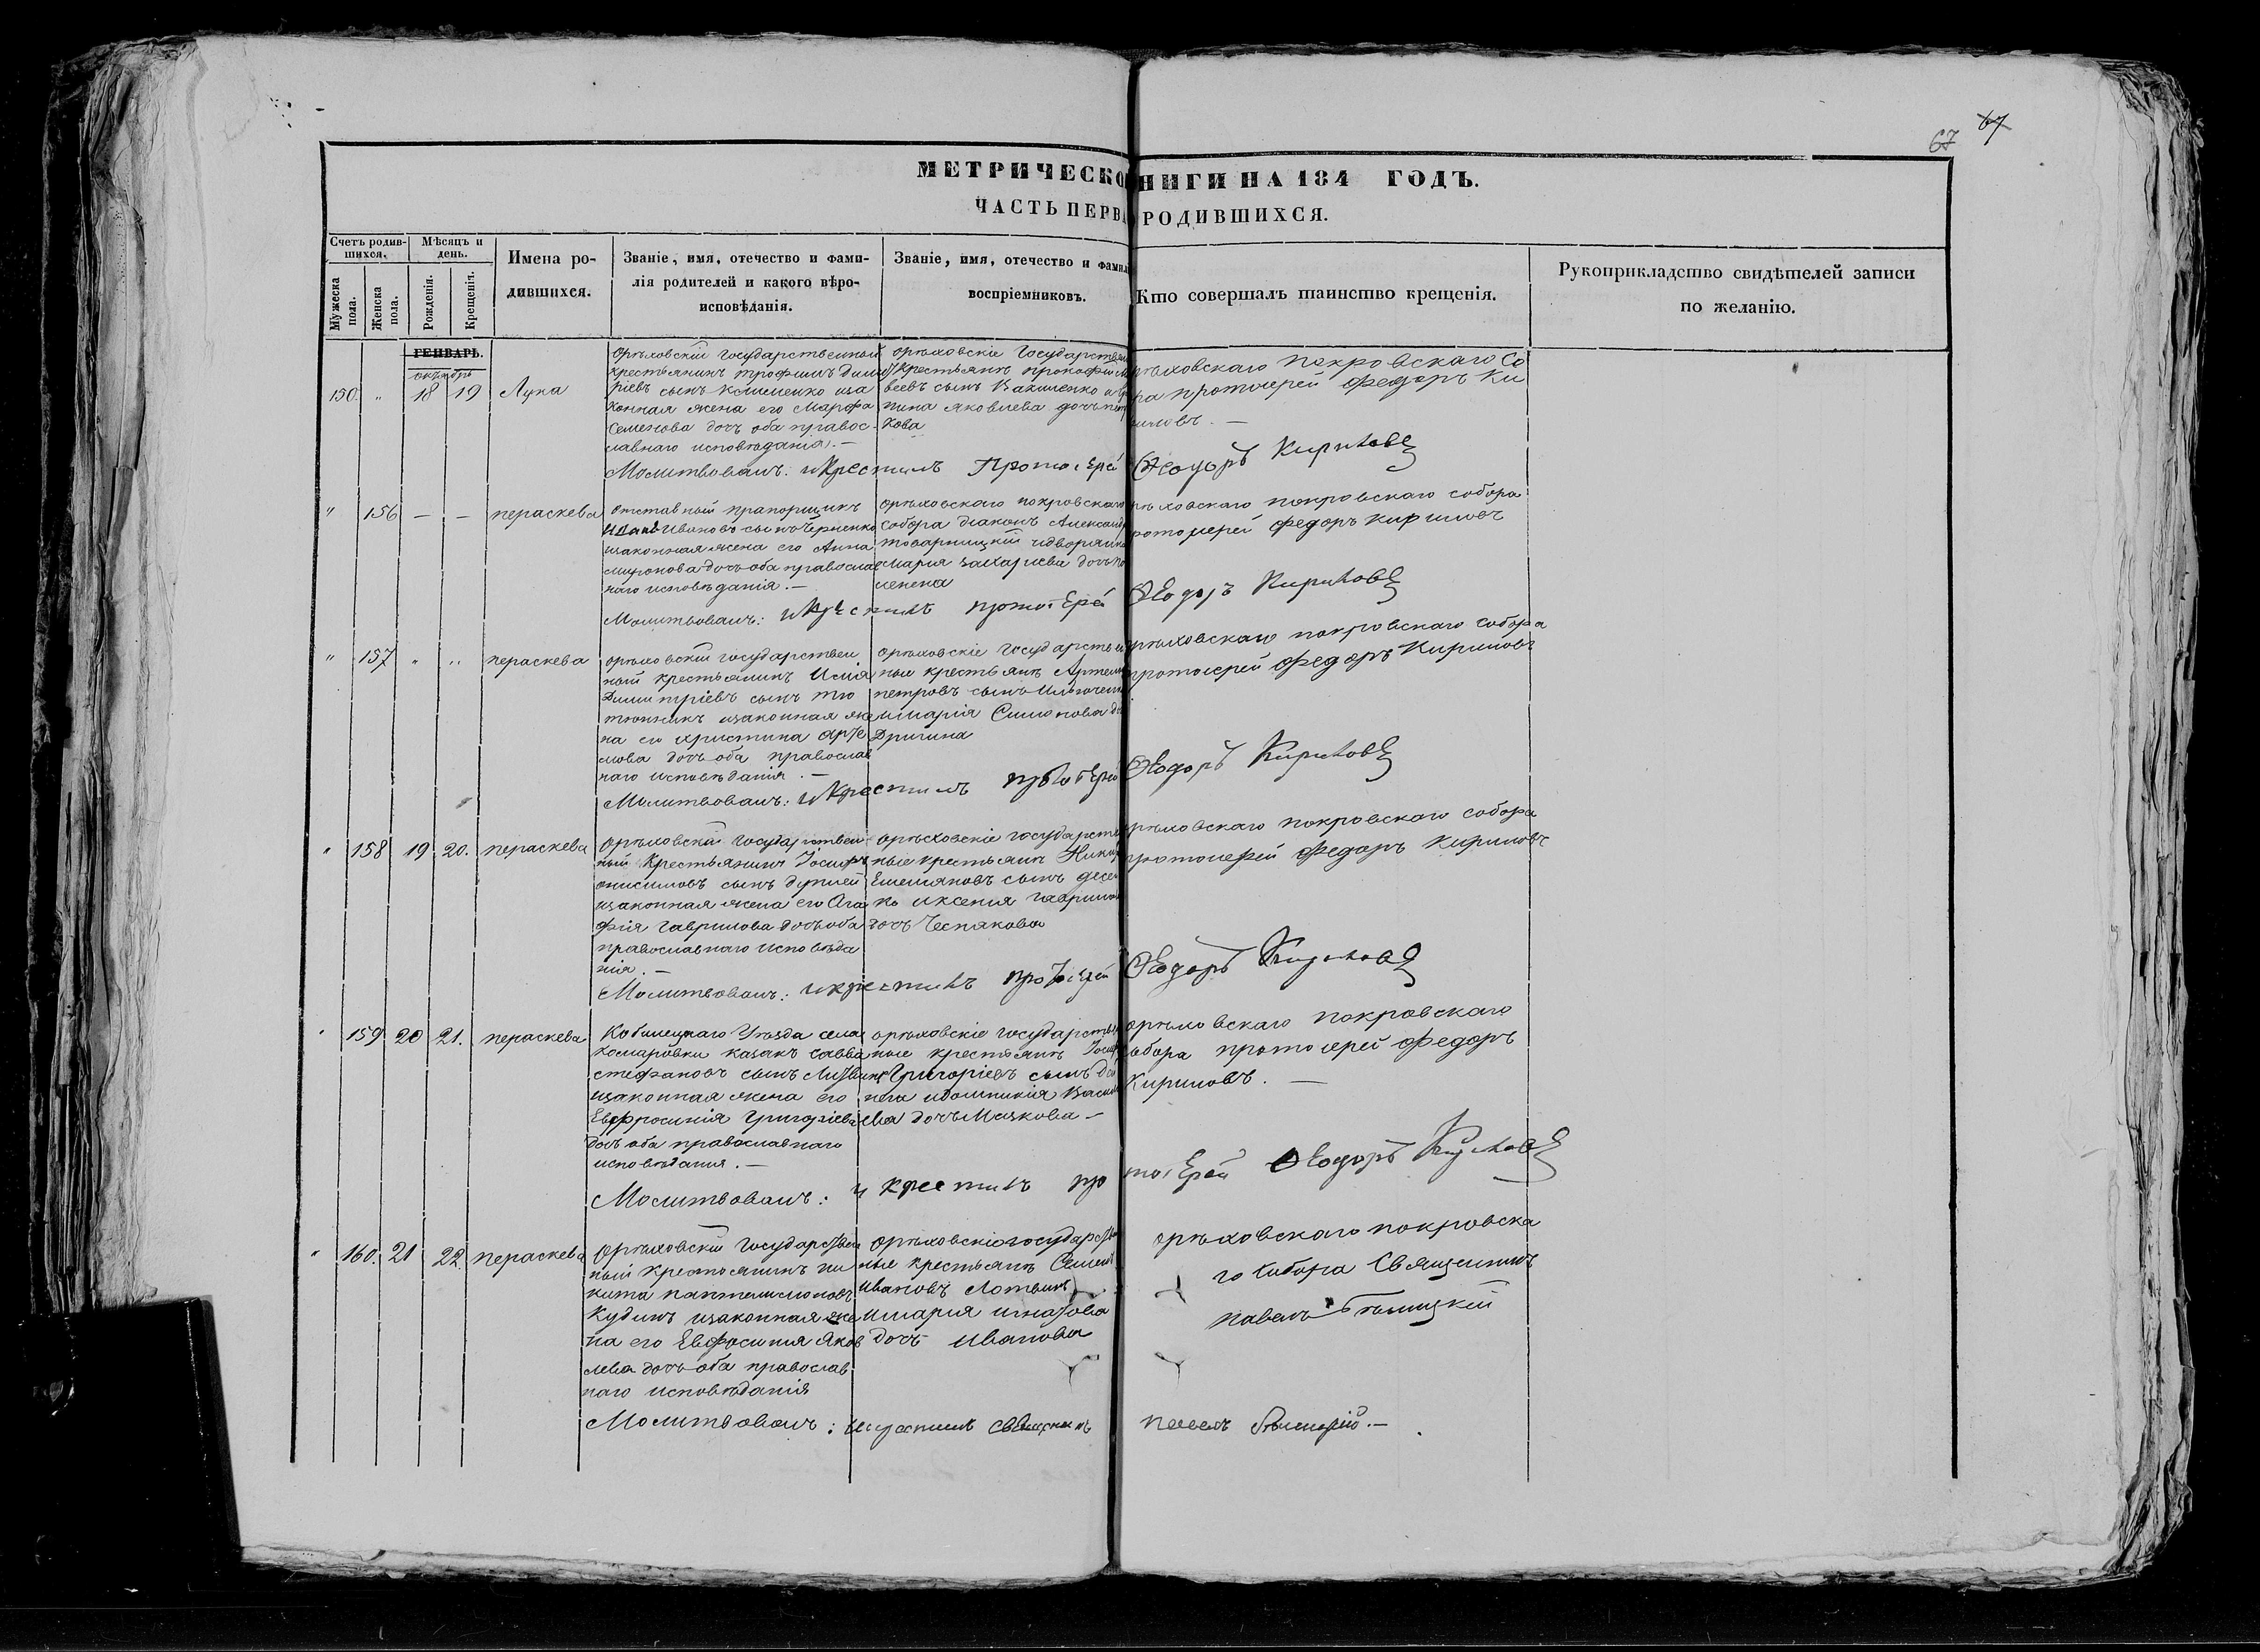 67 67
МЕТРИЧЕСКО НИГИ НА 184 ГОДЪ.
ЧАСТЬ ПЕРВА РОДИВШИХСЯ.
Счетъ родив-
шихся.
Мужеска пола.
Женска пола.
Мѣсяцъ и
день.
Рожденія.
Крещенія.
Имена ро-
дившихся.
Званіе, имя, отечество и фами-
лія родителей и какого вѣро-
исповѣданія.
Званіе, имя, отечество и фамил
воспріемниковъ.
Кто совершалъ таинство крещенія.
Рукоприкладство свидѣтелей записи
по желанію.
ГЕНВАРЬ.
октябрь
150. " 18 19 Лука
орѣховскій государственный
крестьянинъ трофимъ дими
ріевъ сынъ клименко иза
конная жена его Марфа
Семенова дочъ оба правос-
лавнаго исповѣданія.—
орѣховскіе Государствен
крестьянѣ прокофій
веевъ сынъ Вакуленко
яковлева дочъ
кова
рѣховскаго покровскаго Со
ра протоіерей федоръ Ки
риловъ.—
Молитвовалъ: и Крестилъ Протоіерей Феодоръ Кириловъ
" 156 — — пераскева
отставный прапорщикъ
Ивановъ сынъ Черненко
изаконная жена его Анна
миронова дочъ оба православ
наго исповѣданія.—
орѣховскаго покровскаго
Собора діаконъ Александ
товарницкій идворянка
Мария захариева дочъ
рѣховскаго покровскаго собора
ротоіерей федоръ Кириловъ
Молитвовалъ: и Крестилъ протоіерей Феодоръ Кириловъ
" 157 " " пераскева
орѣховскій государствен
ный крестьянинъ Илія
Димитріевъ сынъ тю
тюнникъ изаконная же
на его христина арте
мова дочъ оба православ
наго исповѣданія.—
орѣховскіе государствен
ные крестьянѣ Артемій
петровъ сынъ Ильюченко
имарія Симонова до
Дригина
рѣховскаго покровскаго собора
протоіерей федоръ Кириловъ
Молитвовалъ: и Крестилъ протоіерей Феодоръ Кириловъ
" 158 19 20. пераскева
орѣховскій государствен
ный Крестьянинъ Іосифъ
онисимовъ сынъ дуплей
изаконная жена его Ага
фія гаврилова дочъ оба
православнаго исповѣда
нія.—
орѣховскіе государств
ные крестьянѣ Никиф
Емельяновъ сынъ
ко иксения гаврилов
дочъ Чеснакова
рѣховскаго покровскаго собора
протоіерей федоръ Кириловъ
Молитвовалъ: и крестилъ протоіерей Феодоръ Кириловъ
" 159 20 21. пераскева
Кобиляцкаго Уѣзда села
комаровки казакъ савва
стефановъ сынъ Литвин
изаконная жена его
Евфросинія Григоріева
дочъ оба православнаго
исповѣдания.—
орѣховскіе государствен
ные крестьянѣ Іосиф
Григоріевъ сынъ
идомникія Васил
ева дочъ Мазкова —
орѣховскаго покровскаго
собора протоіерей федоръ
Кириловъ.—
Молитвовалъ: и крестилъ протоіерей Феодоръ Кириловъ
" 160. 21 22. пераскева
Орѣховскій государствен
ный крестьянинъ ни
кита пантелимоновъ
Кудинъ изаконная же
на его Евфросиния Яков
лева дочъ оба православ
наго исповѣданія
орѣховскіе государствен
ные крестьянѣ Семенъ
Ивановъ
имария игнатова
дочъ иванова
орѣховскаго покровска
го собора Священникъ
павелъ
Молитвовалъ: икрестилъ священникъ павелъ